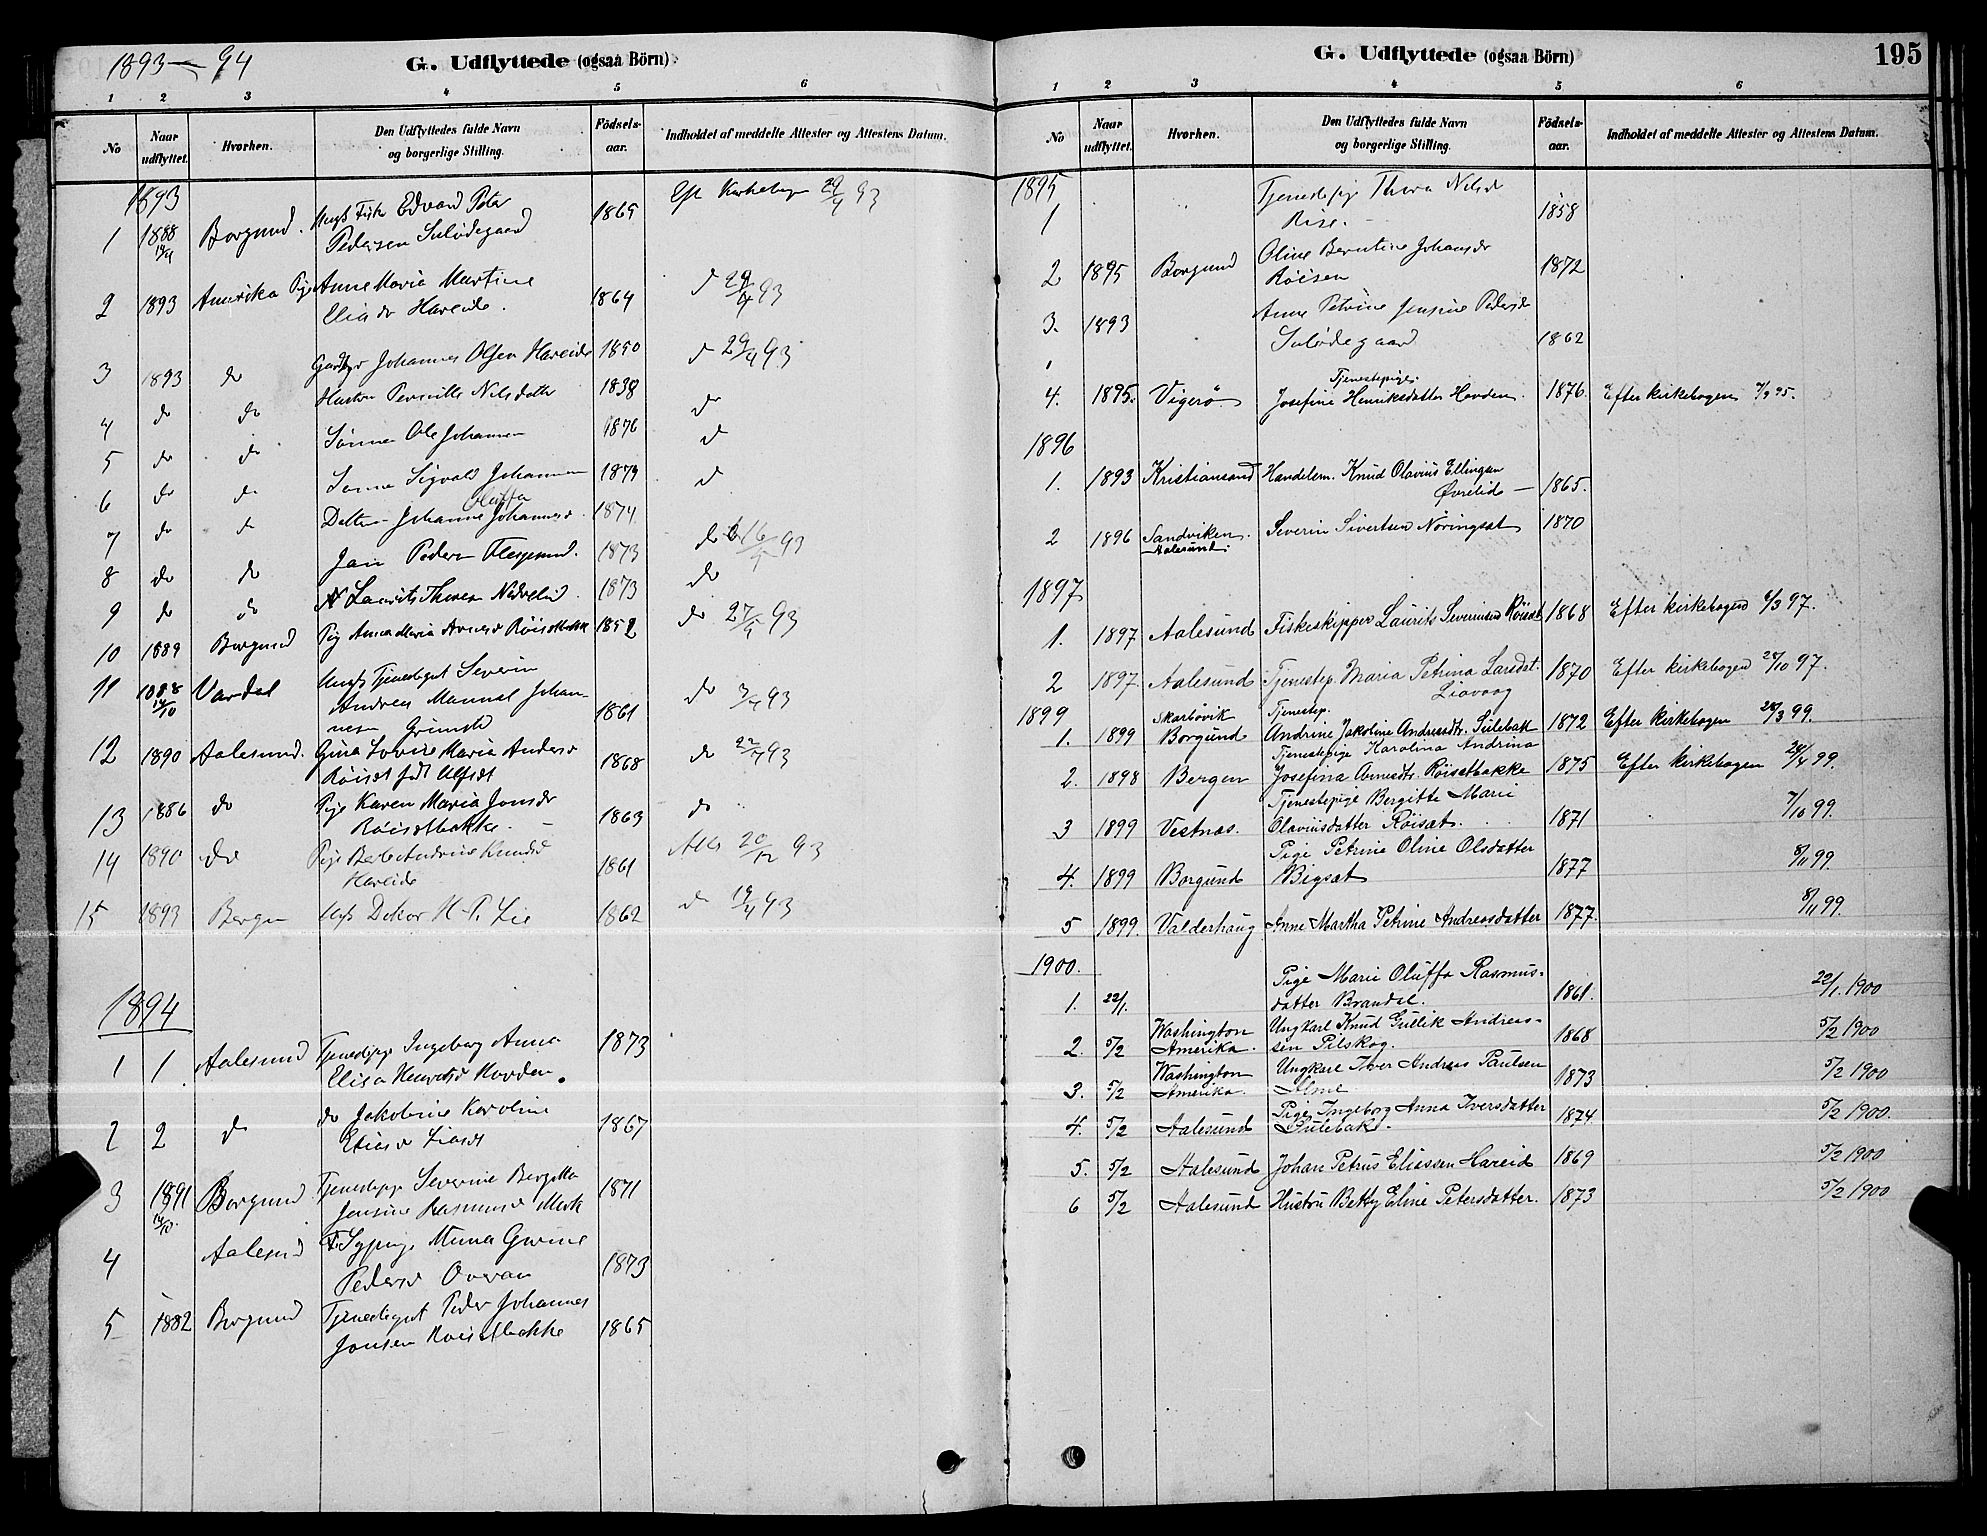 1893 – 94
G. Udflyttede (ogsaa Börn).
1 2 3 4 5 6
No
Naar udflyttet.
Hvorhen.
Den Udflyttedes fulde Navn
og borgerlige Stilling.
Födsels-
aar.
Indholdet af meddelte Attester og Attestens Datum.
1893
1 1888 Borgund. Edvard Peter 1865 Eft Kirkebogen 29/4 93
Pedersen Sulödegaard
2 1893 Amerika Pige Anne Maria Martine 1864 d 29/4 93
Eliasdr Hareide.
3 1893 do Johannes Olsen Hareide 1850 d 29/4 93
4 do do Hustru Pernille Nilsdatter 1838 do
5 do do Sönnen Ole Johannesen 1876 d
6 do do Sönnen Sigvald Johannesen 1879 d
Oluffa
7 do do Datter Johanne Johannesd. 1874
8 do do Peder Flesjesund. 1873 do 16/5 93
9 do do Laurits Nedrelid. 1873 do
10 1889 Borgund Pig Anna Maria Röisetbakk 1852 do 27/5 93
11 1888 14/10 Vardal Ungk Tjenestegut Severin
Andreas Manuel Johan-
nesen Grimstd 1861 do 3/7 93
12 1890 Aalesund. Gina Lovise Maria Andersd 1868 do 22/7 93
Röiset födt
13 1886 do Pige Karen Maria Jonsdr 1863 do
Röisetbakke. –
14 1890 do Pige Knudsd 1861 20/12 93
Hareide
15 1893 Bergen Doktor Lie 1862 d 19/4 93
1894
1 1 Aalesund Tjenestpige Ingeborg Anna 1873
Elisa Henriksd Hovden.
2 2 d do Jakobine Karoline 1867
Eliasd Liaset
3 1891 Borgund Tjenestpige Severine Bergitta 1871
Jensine Rasmusd Mork
4 Aalesund Sypige 1873
Pedersd Overaa
5 1882 Borgund Tjenestegut Peder Johannes
Jonsen Röisetbakke 1865
G. Udflyttede (ogsaa Börn)
195
1 2 3 4 5 6
No
Naar udflyttet.
Hvorhen.
Den Udflyttedes fulde Navn
og borgerlige Stilling.
Födsels-
aar.
Indholdet af meddelte Attester og Attestens Datum.
1895
1 Tjenestepige Thora Nilsd
Rise. – 1858
2 1895 Borgund Oline Berntine Johansdr
Röisen 1872
3. 1893 Anne Petrine Jensine Pedersd
Sulödegaard 1862
Tjenestepige
4. 1895. Vigerö. Josefine Henriksdatter Hovden. 1876. Efter kirkebogen 7/9 95.
1896
1. 1893 Kristiansund Handelsm. Knud Olavius Ellingsen
Øvrelid — 1865.
2 1896 Sandviken. Severin Sivertsen Nöringsat 1870
Aalesund.
1897
1. 1897 Aalesund Fiskeskipper Laurits Severinsen Röiset 1868 Efter kirkebogen 6/3 97.
2 1897. Aalesund Tjenestep. Maria Petrina Larsdat. 1870 Efter kirkebogen 28/10 97.
Liavoag
1899 Skarbövik Tjenestep.
1. 1899 Borgund Andrine Jakoline Andreasdtr. Sulebak 1872 Efter kirkebogen 28/3 99.
Tjenestepige Karolina Andrina
2. 1898 Bergen Josefina Arnesdtr. Röisetbakke 1875 Efter kirkebogen 28/4 99.
Tjenestepige Bergitte Marie
3 1899 Vestnæs. Olaviusdatter Röisat. 1871 7/10 99.
Pige Petrine Oline Olsdatter
4. 1899 Borgund Bigsat 1877 8/11 99.
5 1899. Valderhaug Anne Martha Petrine Andreasdatter 1877. 8/11 99.
1900.
Pige Marie Oluffa Rasmus-
1. 22/1. datter Brandal. 1861. 22/1. 1900
Washington Ungkarl Knud Gullik Andreas-
2. 5/2 Amerika. sen Pilskog. 1868 5/2 1900
Washington Ungkarl Iver Andreas Paulsen
3. 5/2 Amerika. Alme 1873 5/2 1900
Pige Ingeborg Anna Iversdatter
4. 5/2 Aalesund Sulebak. 1874 5/2 1900
5. 5/2 Aalesund Johan Petrus Eliassen Hareid 1869 5/2 1900
6 5/2 Aalesund Hustru Betty Eline Petersdatter. 1873 5/2 1900